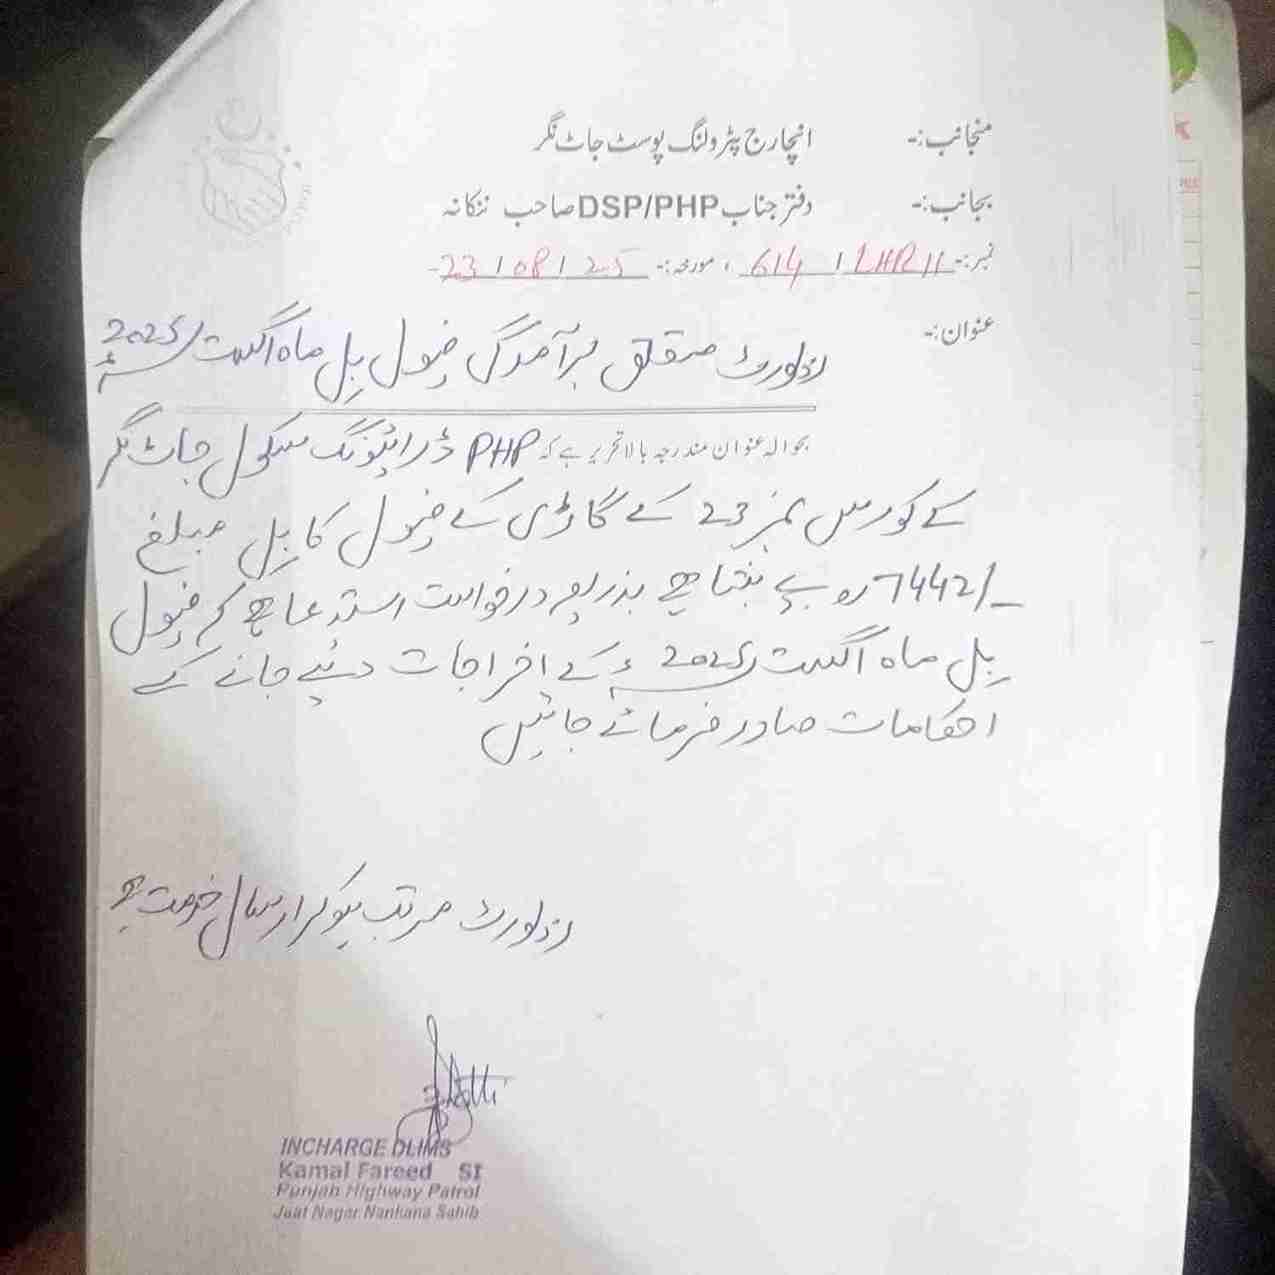 منجانب:- انچارج پٹرولنگ پوسٹ جاٹ نگر
بجانب:- دفتر جناب DSP/PHP صاحب ننکانہ
نمبر:- 614 / LHR II ، مورخہ:- 23/08/25
عنوان:- رپورٹ متعلق برآمدگی فیول بل ماہ اگست 2025ء
بحوالہ عنوان مندرجہ بالا تحریر ہے کہ PHP ڈرائیونگ سکول جاٹ نگر
کے کورس نمبر 23 کے گاڑی کے فیول کا بل مبلغ
7442/- روپے بنتا ہے بذریعہ درخواست استدعا ہے کہ فیول
بل ماہ اگست 2025ء کے اخراجات دیئے جانے کے
احکامات صادر فرمائے جائیں
رپورٹ مرتب ہو کر ارسال خدمت ہے
INCHARGE DLIMS
Kamal Fareed SI
Punjab Highway Patrol
Jaat Nagar Nankana Sahib